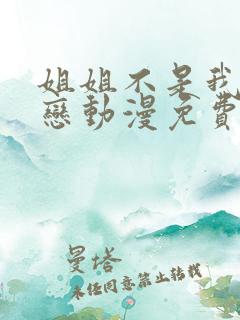 姐姐不是我
戀動漫免費
曼塔
未經同意禁止轉載